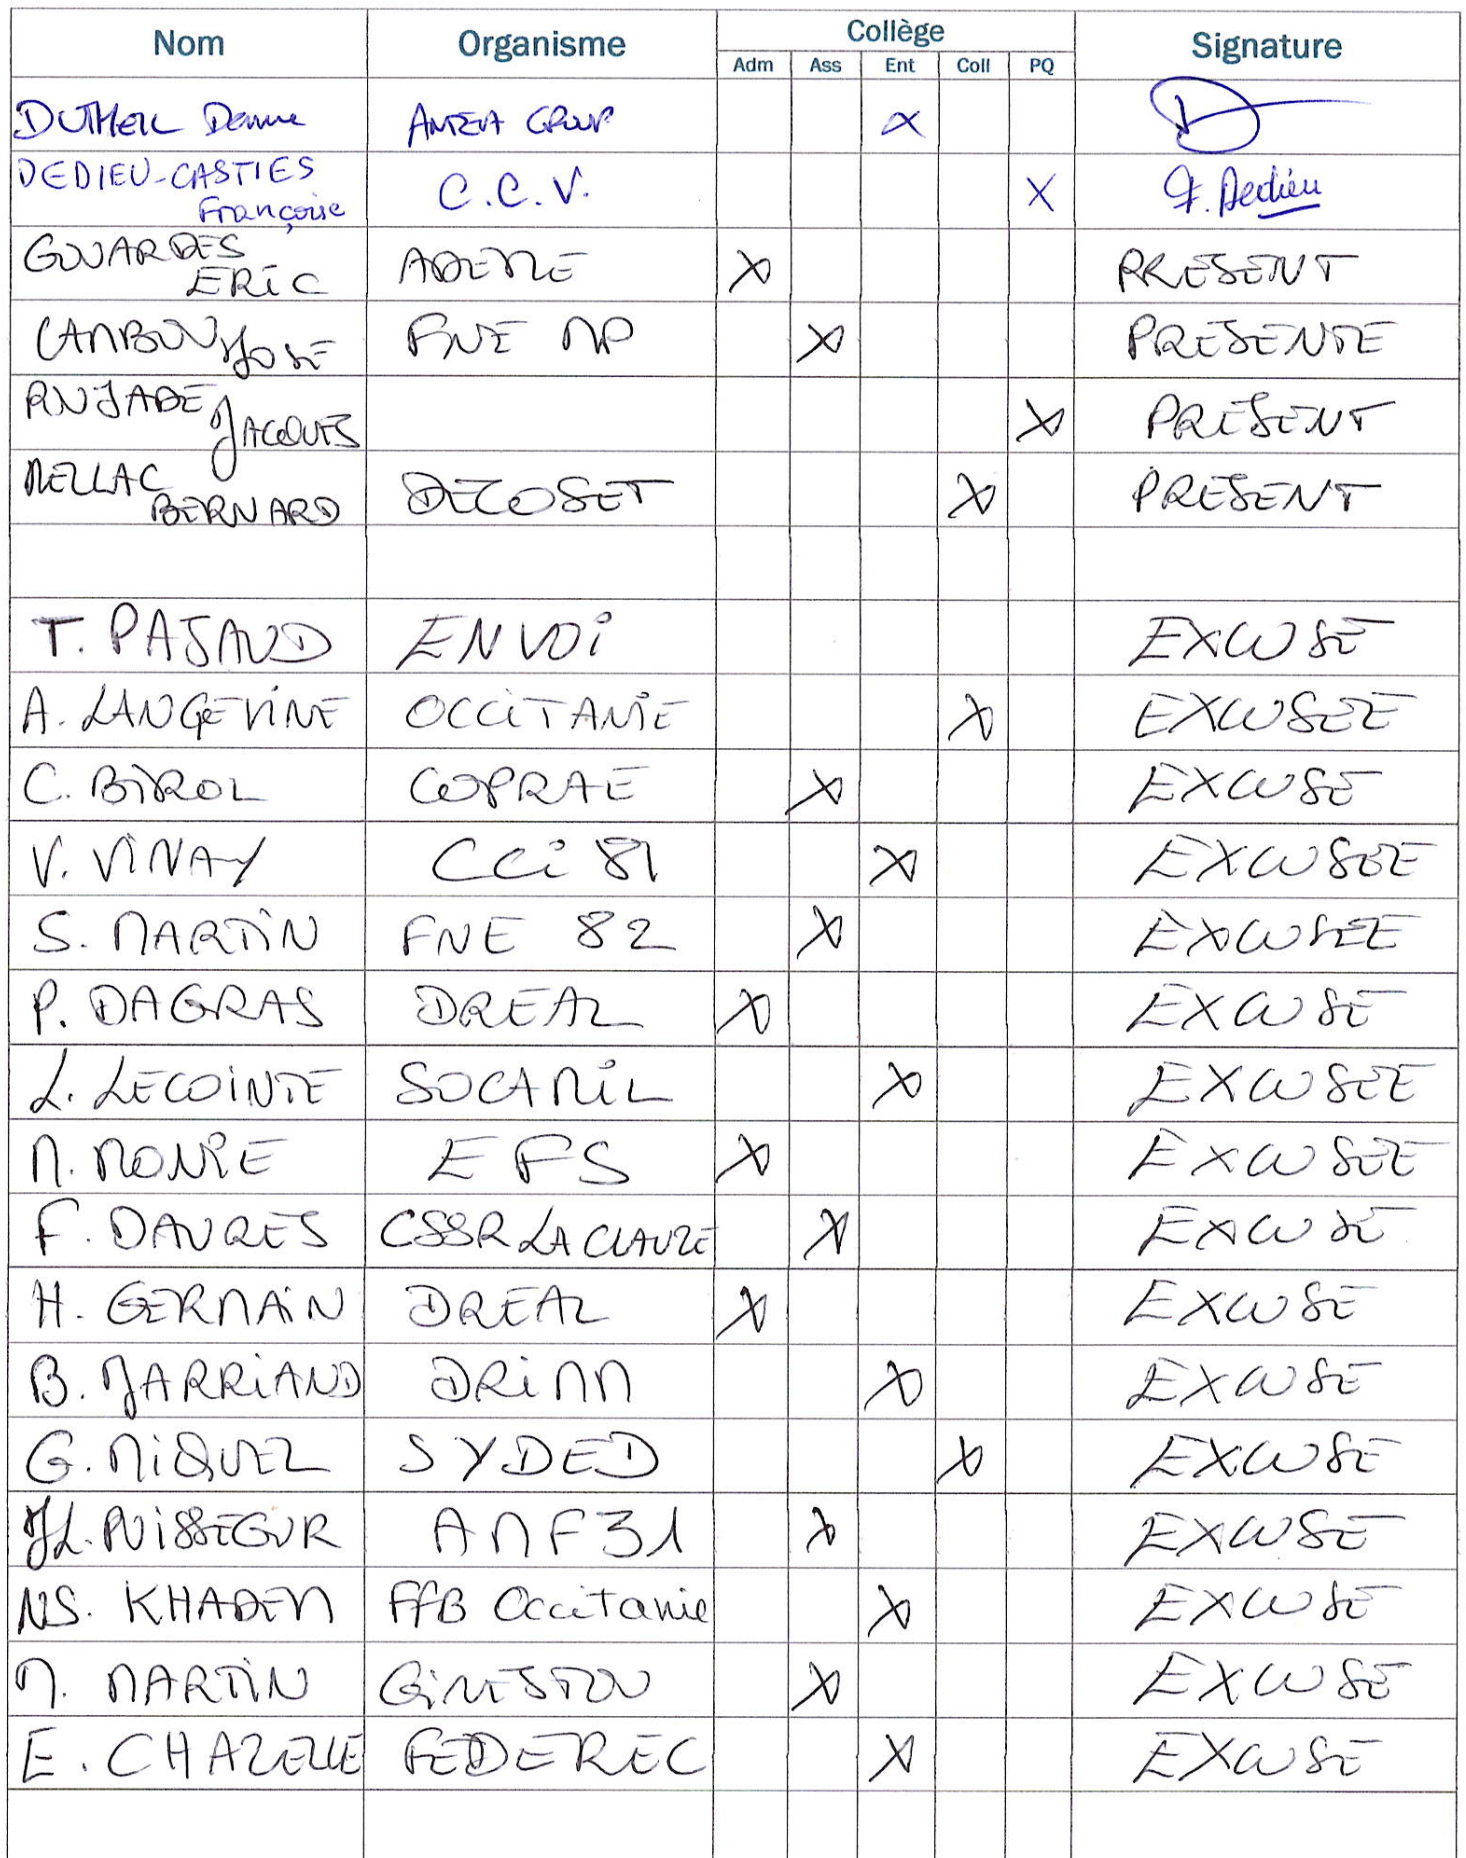 Nom Organisme Collège Signature
Adm Ass Ent Coll PQ
DUTHEIL ANTEA GROUP X
DEDIEU-CASTIES Françoise C.C.V. X F. Dedieu
GOUARDES ERIC ADEME X PRESENT
CAMBON JOSE FNE MP X PRESENTE
RUJADE JACQUES X PRESENT
MELLAC BERNARD DECOSET X PRESENT
T. PAJAUD ENVOI EXCUSE
A. LANGEVINE OCCITANIE X EXCUSEE
C. BIROL COPRAE X EXCUSE
V. VINAY CCI 81 X EXCUSEE
S. MARTIN FNE 82 X EXCUSEE
P. DAGRAS DREAL X EXCUSE
L. LECOINTE SOCAMIL X EXCUSEE
M. MONIE EFS X EXCUSEE
F. DAURES CSSR LA CLAUZE X EXCUSE
H. GERMAIN DREAL X EXCUSE
B. JARRIAND DRIMM X EXCUSE
G. MIQUEL SYDED X EXCUSE
JL. PUISSEGUR AMF31 X EXCUSE
NS. KHADEM FFB Occitanie X EXCUSE
M. MARTIN GINESTOU X EXCUSE
E. CHAZELLE FEDEREC X EXCUSE